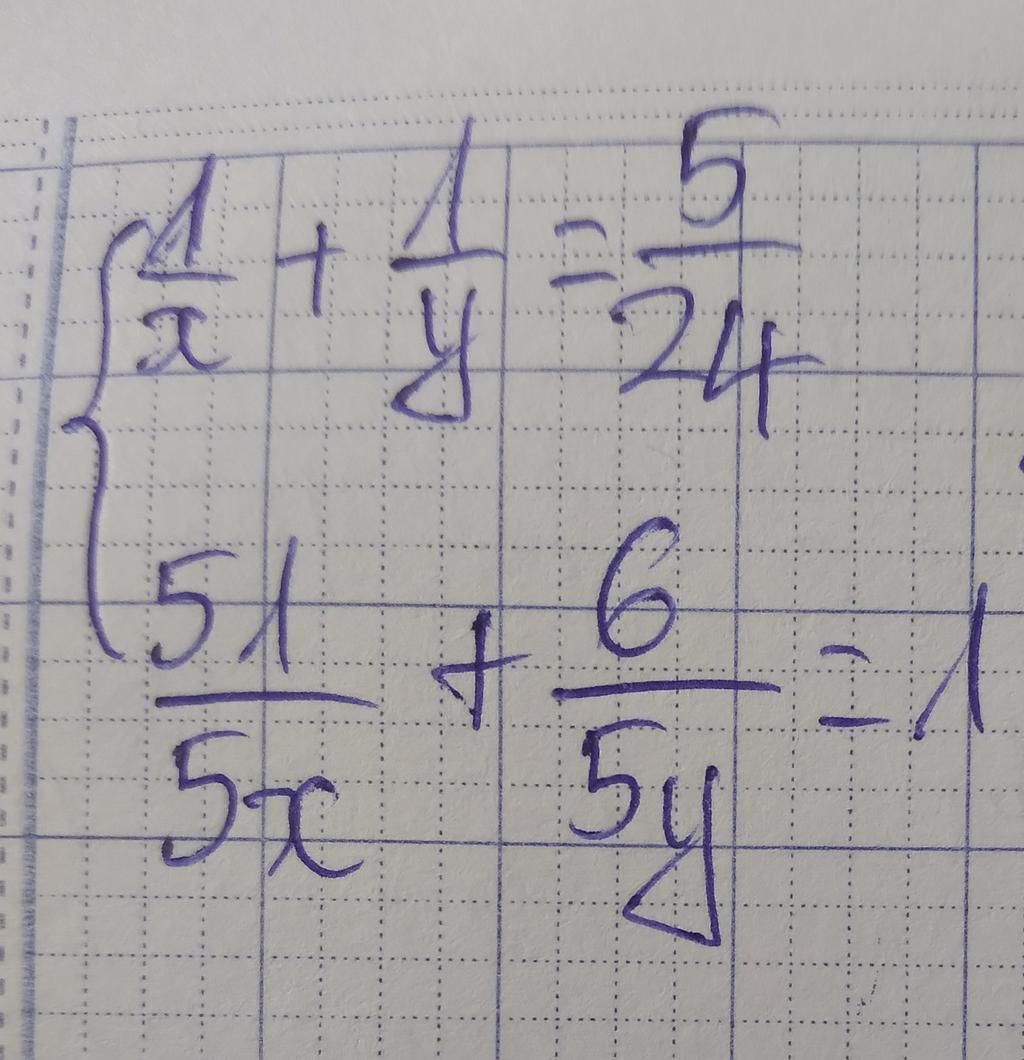 1/x + 1/y = 5/24
51/5x + 6/5y = 1